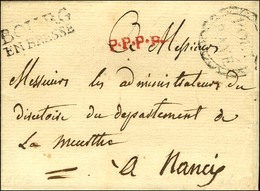 BOURG
EN BRESSE
P.P.P.P.
A Messieurs
Messieurs les administrateurs du
directoire du departement de
La meurthe
a Nancis